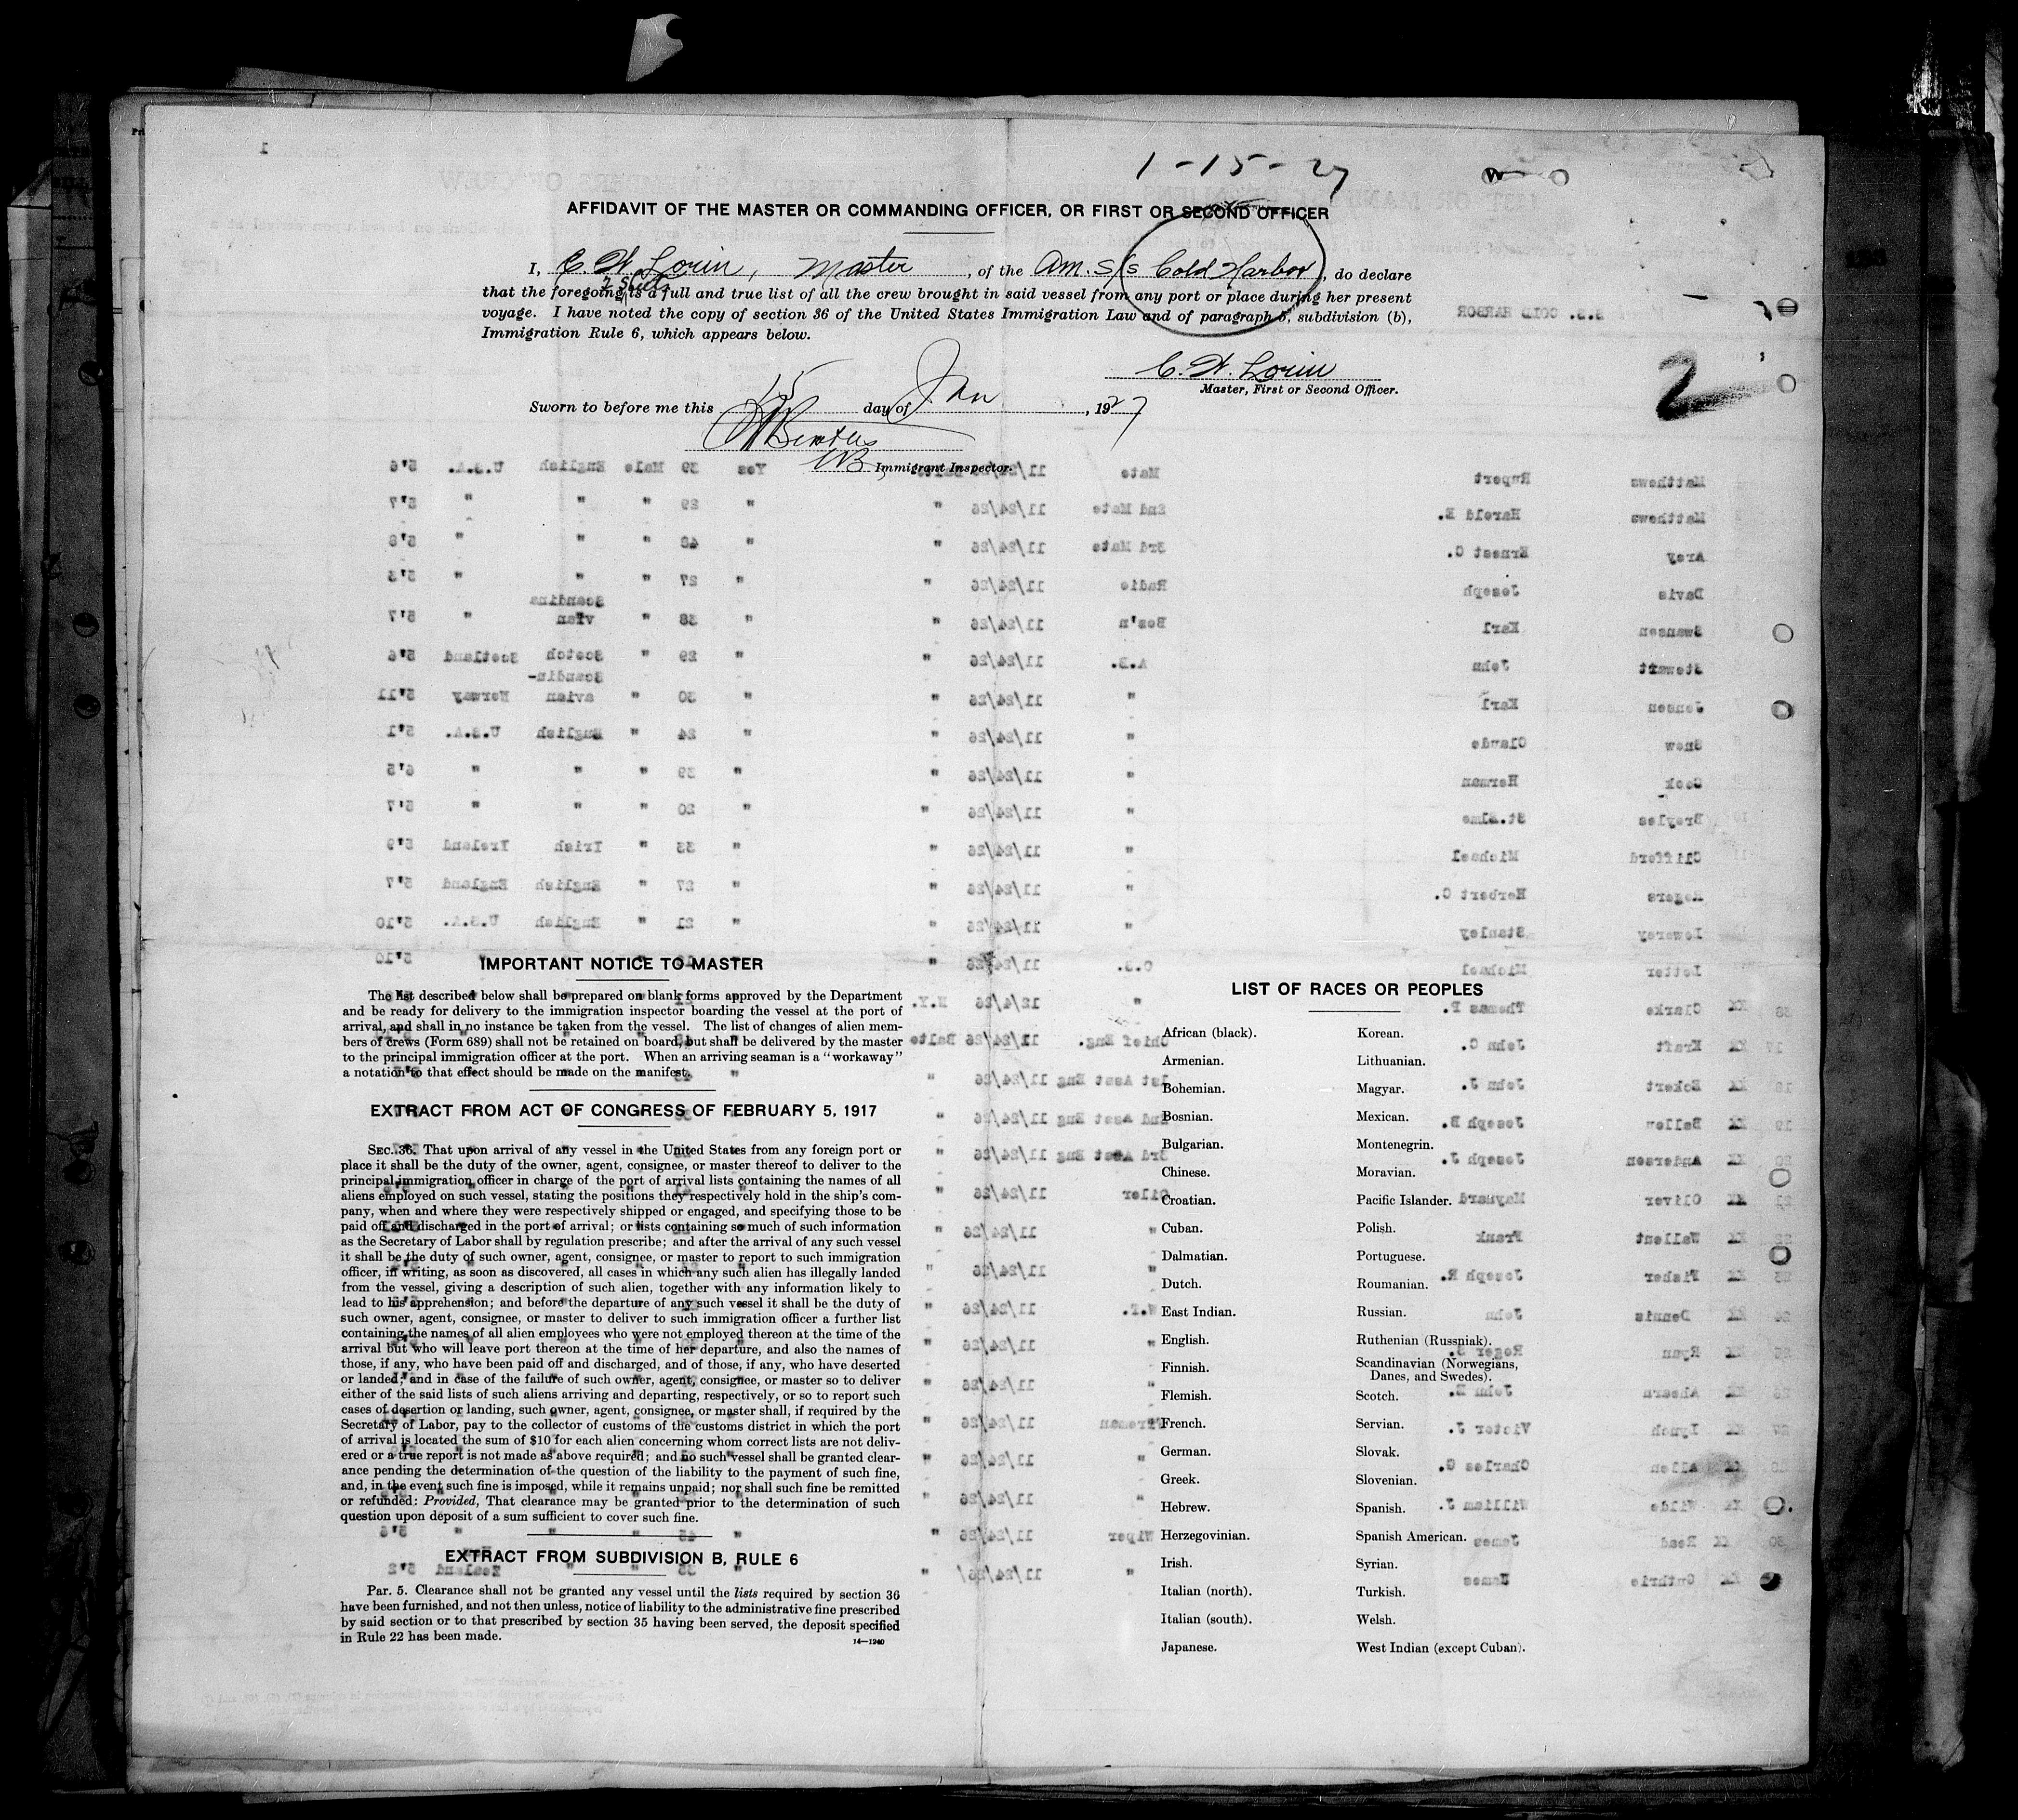 1-15-27
AFFIDAVIT OF THE MASTER OR COMMANDING OFFICER, OR FIRST OR SECOND OFFICER
I, C. W. Lorin, Master, of the Am. S/S Cold Harbor, do declare
2 Sheets
that the foregoing is a full and true list of all the crew brought in said vessel from any port or place during her present
voyage. I have noted the copy of section 36 of the United States Immigration Law and of paragraph 5, subdivision (b),
Immigration Rule 6, which appears below.
C. W. Lorin
Master, First or Second Officer.
2
Sworn to before me this 15 day of Jan, 1927
Immigrant Inspector.
IMPORTANT NOTICE TO MASTER
The list described below shall be prepared on blank forms approved by the Department
and be ready for delivery to the immigration inspector boarding the vessel at the port of
arrival, and shall in no instance be taken from the vessel. The list of changes of alien mem-
bers of crews (Form 689) shall not be retained on board, but shall be delivered by the master
to the principal immigration officer at the port. When an arriving seaman is a "workaway"
a notation to that effect should be made on the manifest.
EXTRACT FROM ACT OF CONGRESS OF FEBRUARY 5, 1917
SEC. 36. That upon arrival of any vessel in the United States from any foreign port or
place it shall be the duty of the owner, agent, consignee, or master thereof to deliver to the
principal immigration officer in charge of the port of arrival lists containing the names of all
aliens employed on such vessel, stating the positions they respectively hold in the ship's com-
pany, when and where they were respectively shipped or engaged, and specifying those to be
paid off and discharged in the port of arrival; or lists containing so much of such information
as the Secretary of Labor shall by regulation prescribe; and after the arrival of any such vessel
it shall be the duty of such owner, agent, consignee, or master to report to such immigration
officer, in writing, as soon as discovered, all cases in which any such alien has illegally landed
from the vessel, giving a description of such alien, together with any information likely to
lead to his apprehension; and before the departure of any such vessel it shall be the duty of
such owner, agent, consignee, or master to deliver to such immigration officer a further list
containing the names of all alien employees who were not employed thereon at the time of the
arrival but who will leave port thereon at the time of her departure, and also the names of
those, if any, who have been paid off and discharged, and of those, if any, who have deserted
or landed; and in case of the failure of such owner, agent, consignee, or master so to deliver
either of the said lists of such aliens arriving and departing, respectively, or so to report such
cases of desertion or landing, such owner, agent, consignee, or master shall, if required by the
Secretary of Labor, pay to the collector of customs of the customs district in which the port
of arrival is located the sum of $10 for each alien concerning whom correct lists are not deliv-
ered or a true report is not made as above required; and no such vessel shall be granted clear-
ance pending the determination of the question of the liability to the payment of such fine,
and, in the event such fine is imposed, while it remains unpaid; nor shall such fine be remitted
or refunded: Provided, That clearance may be granted prior to the determination of such
question upon deposit of a sum sufficient to cover such fine.
EXTRACT FROM SUBDIVISION B, RULE 6
Par. 5. Clearance shall not be granted any vessel until the lists required by section 36
have been furnished, and not then unless, notice of liability to the administrative fine prescribed
by said section or to that prescribed by section 35 having been served, the deposit specified
in Rule 22 has been made.
14—1240
LIST OF RACES OR PEOPLES
African (black).
Armenian.
Bohemian.
Bosnian.
Bulgarian.
Chinese.
Croatian.
Cuban.
Dalmatian.
Dutch.
East Indian.
English.
Finnish.
Flemish.
French.
German.
Greek.
Hebrew.
Herzegovinian.
Irish.
Italian (north).
Italian (south).
Japanese.
Korean.
Lithuanian.
Magyar.
Mexican.
Montenegrin.
Moravian.
Pacific Islander.
Polish.
Portuguese.
Roumanian.
Russian.
Ruthenian (Russniak).
Scandinavian (Norwegians,
Danes, and Swedes).
Scotch.
Servian.
Slovak.
Slovenian.
Spanish.
Spanish American.
Syrian.
Turkish.
Welsh.
West Indian (except Cuban).